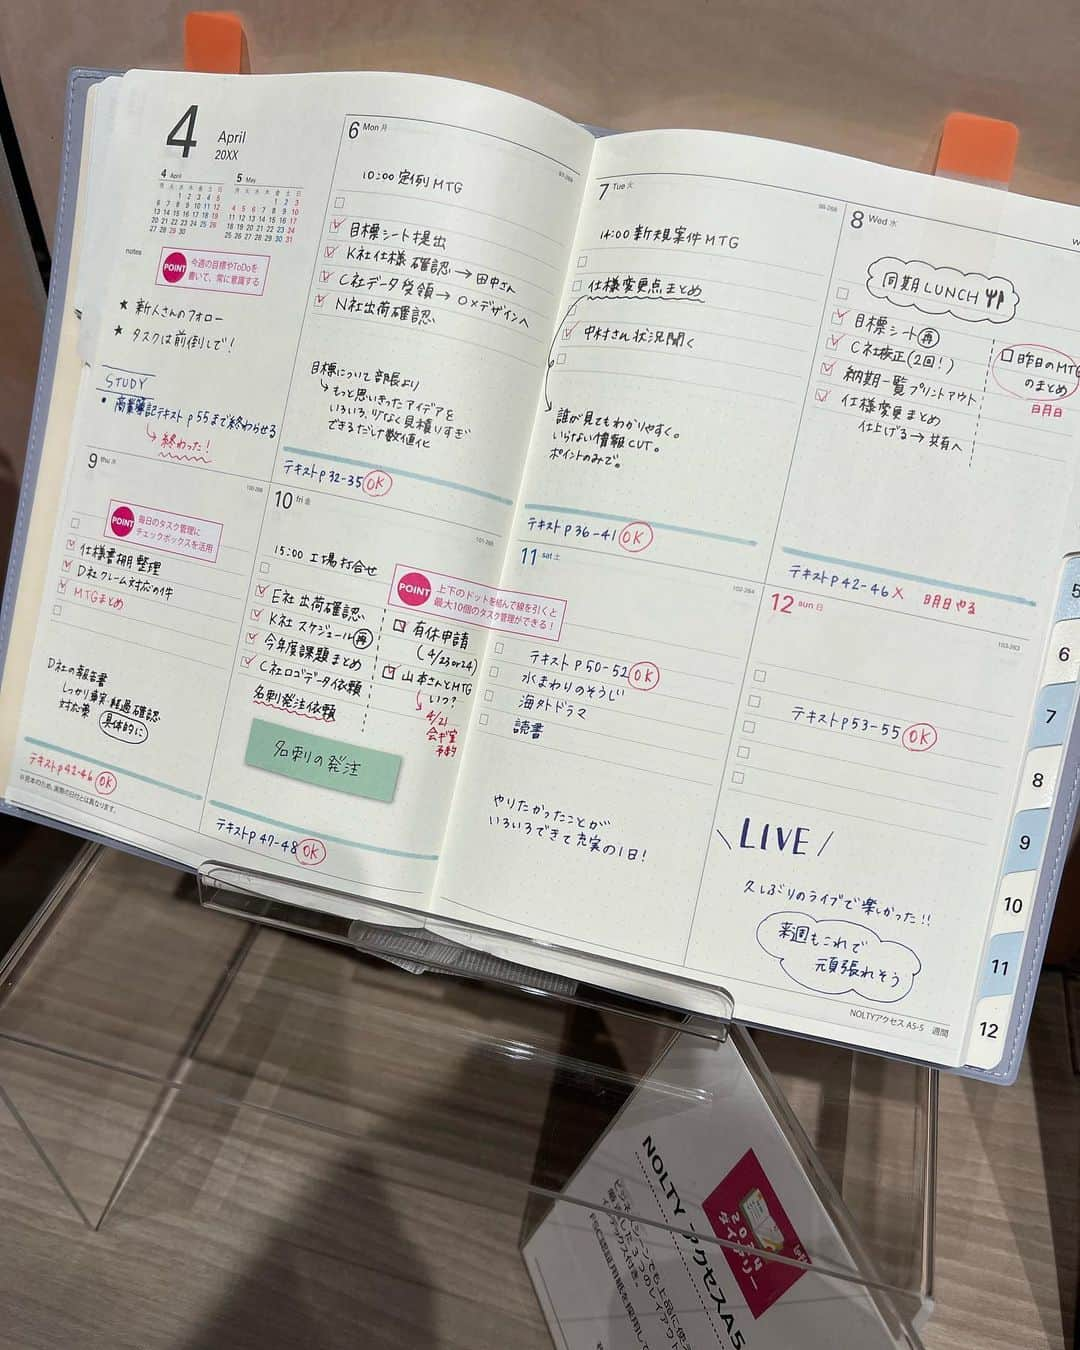 4
April
20XX
4 April
5 May
notes
POINT
今週の目標やToDoを
書いて、常に意識する
★ 新人さんのフォロー
★ タスクは前倒しで！
STUDY
• 商業簿記テキスト p55まで終わらせる
終わった！
6 Mon 月
10:00 定例MTG
目標シート提出
K社仕様確認 → 田中さん
C社データ受領 → ○×デザインへ
N社出荷確認
目標について部長より
もっと思いきったアイデアを
いろいろ。少なく見積りすぎ
できるだけ数値化
テキストp32-35 OK
7 Tue 火
98-268
14:00 新規案件MTG
仕様変更点まとめ
中村さん状況聞く
誰が見てもわかりやすく。
いらない情報CUT。
ポイントのみで。
テキストp36-41 OK
8 Wed 水
同期LUNCH
目標シート 再
C社校正(2回！)
納期一覧プリントアウト
仕様変更まとめ
仕上げる→共有へ
昨日のMTG
のまとめ
テキストp42-46 × 明日やる
9 thu 木
100-266
POINT
毎日のタスク管理に
チェックボックスを活用
仕様書棚整理
D社クレーム対応の件
MTGまとめ
D社の報告書
しっかり事実・経過確認
対応策 具体的に
テキストp42-46 OK
※見本のため、実際の日付とは異なります。
10 fri 金
101-265
15:00 工場打合せ
POINT
上下のドットを結んで線を引くと
最大10個のタスク管理ができる！
E社出荷確認
K社スケジュール 再
今年度課題まとめ
C社ロゴデータ依頼
名刺発注依頼
有休申請
(4/23or24)
山本さんとMTG
いつ？
4/21
会ギ室
予約
名刺の発注
テキストp47-48 OK
11 sat 土
102-264
テキストp50-52 OK
水まわりのそうじ
海外ドラマ
読書
やりたかったことが
いろいろできて充実の1日！
12 sun 日
103-263
テキストp53-55 OK
\ LIVE /
久しぶりのライブで楽しかった!!
来週もこれで
頑張れそう
NOLTYアクセス A5-5 週間
5
6
7
8
9
10
11
12
NOLTY アクセスA5
2024
ダイアリー